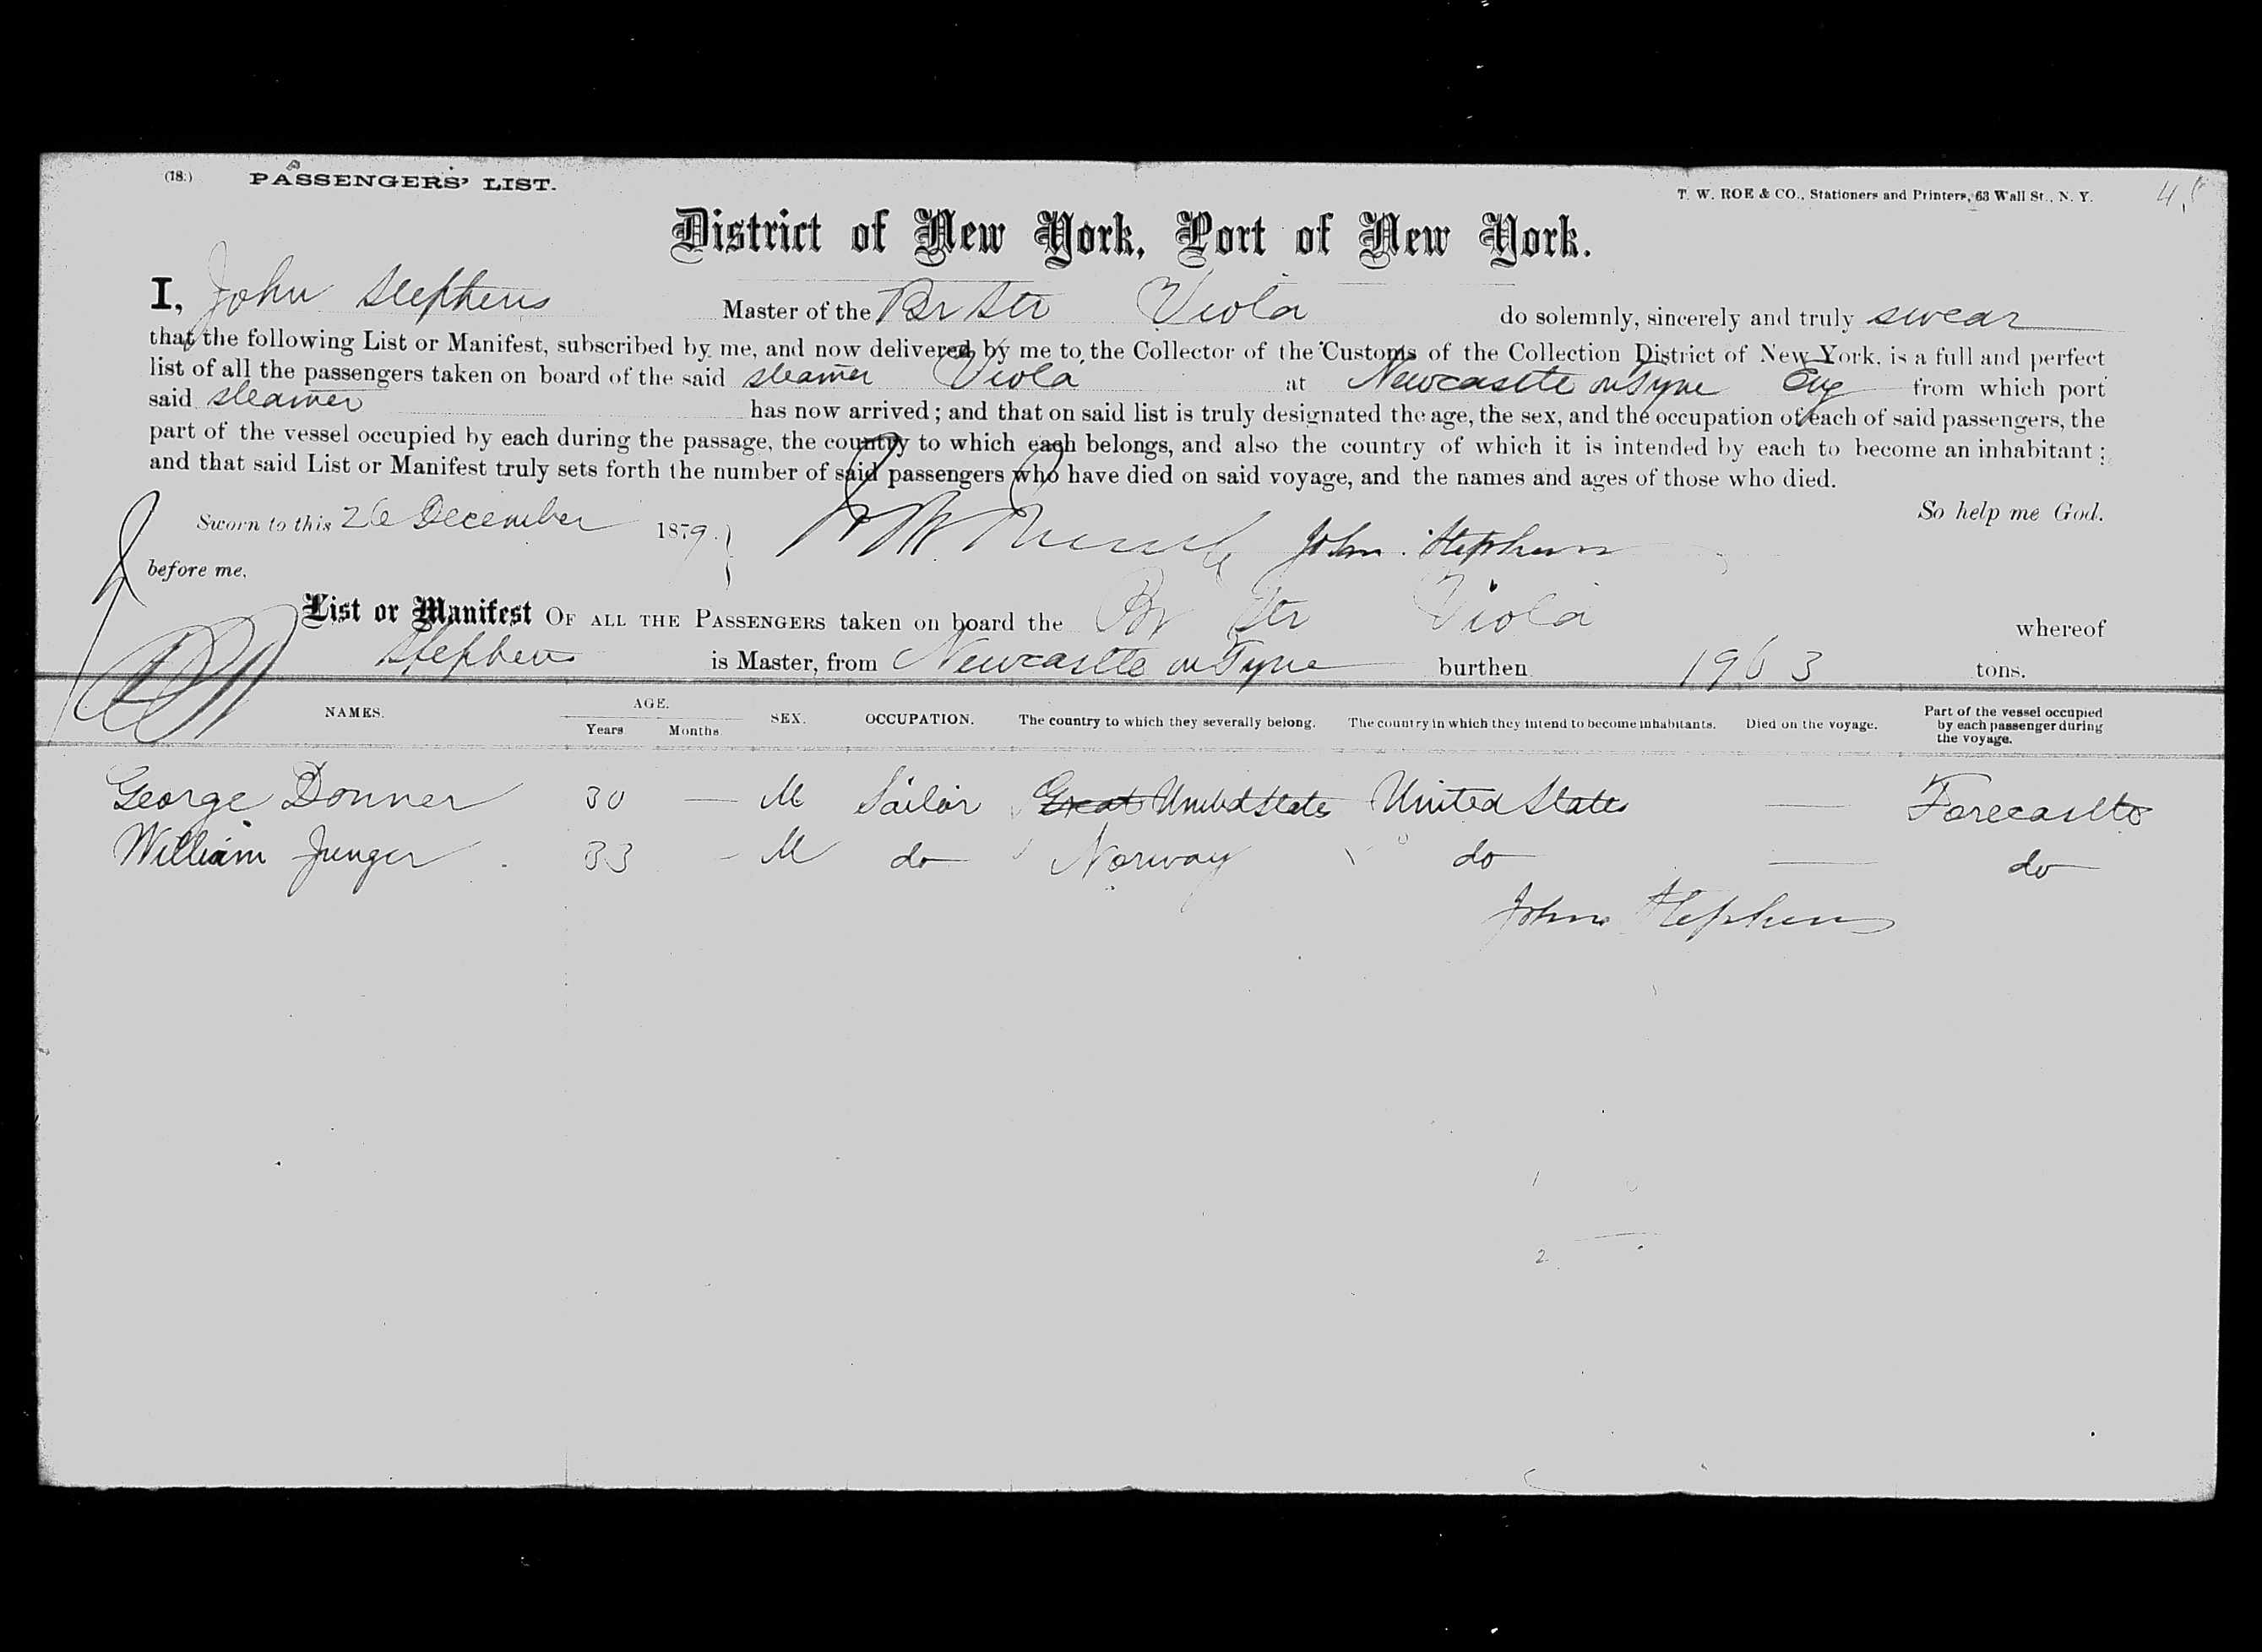 (18.) PASSENGERS' LIST. T. W. ROE & CO., Stationers and Printers, 63 Wall St., N. Y.
District of New York, Port of New York.
I, John Stephens Master of the Br Str Viola do solemnly, sincerely and truly swear
that the following List or Manifest, subscribed by me, and now delivered by me to the Collector of the Customs of the Collection District of New York, is a full and perfect
list of all the passengers taken on board of the said steamer Viola at Newcastle on Tyne Eng from which port
said steamer has now arrived; and that on said list is truly designated the age, the sex, and the occupation of each of said passengers, the
part of the vessel occupied by each during the passage, the country to which each belongs, and also the country of which it is intended by each to become an inhabitant;
and that said List or Manifest truly sets forth the number of said passengers who have died on said voyage, and the names and ages of those who died.
So help me God.
Sworn to this 26 December 1879. John Stephens
before me,
List or Manifest OF ALL THE PASSENGERS taken on board the Br Str Viola whereof
Stephens is Master, from Newcastle on Tyne burthen 1963 tons.
NAMES. AGE. Years Months. SEX. OCCUPATION. The country to which they severally belong. The country in which they intend to become inhabitants. Died on the voyage. Part of the vessel occupied by each passenger during the voyage.
George Donner 30 — M Sailor Great United States United States — Forecastle
William Junger 33 - M do Norway do — do
John Stephens
1
2